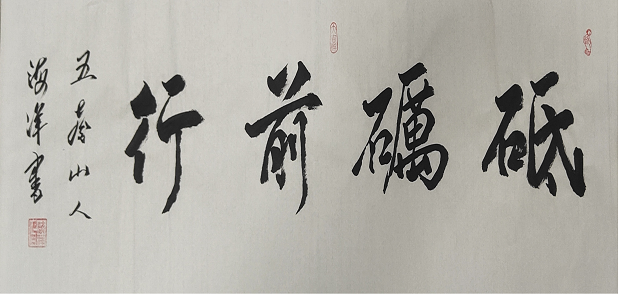 砥礪前行
五春山人
海洋書